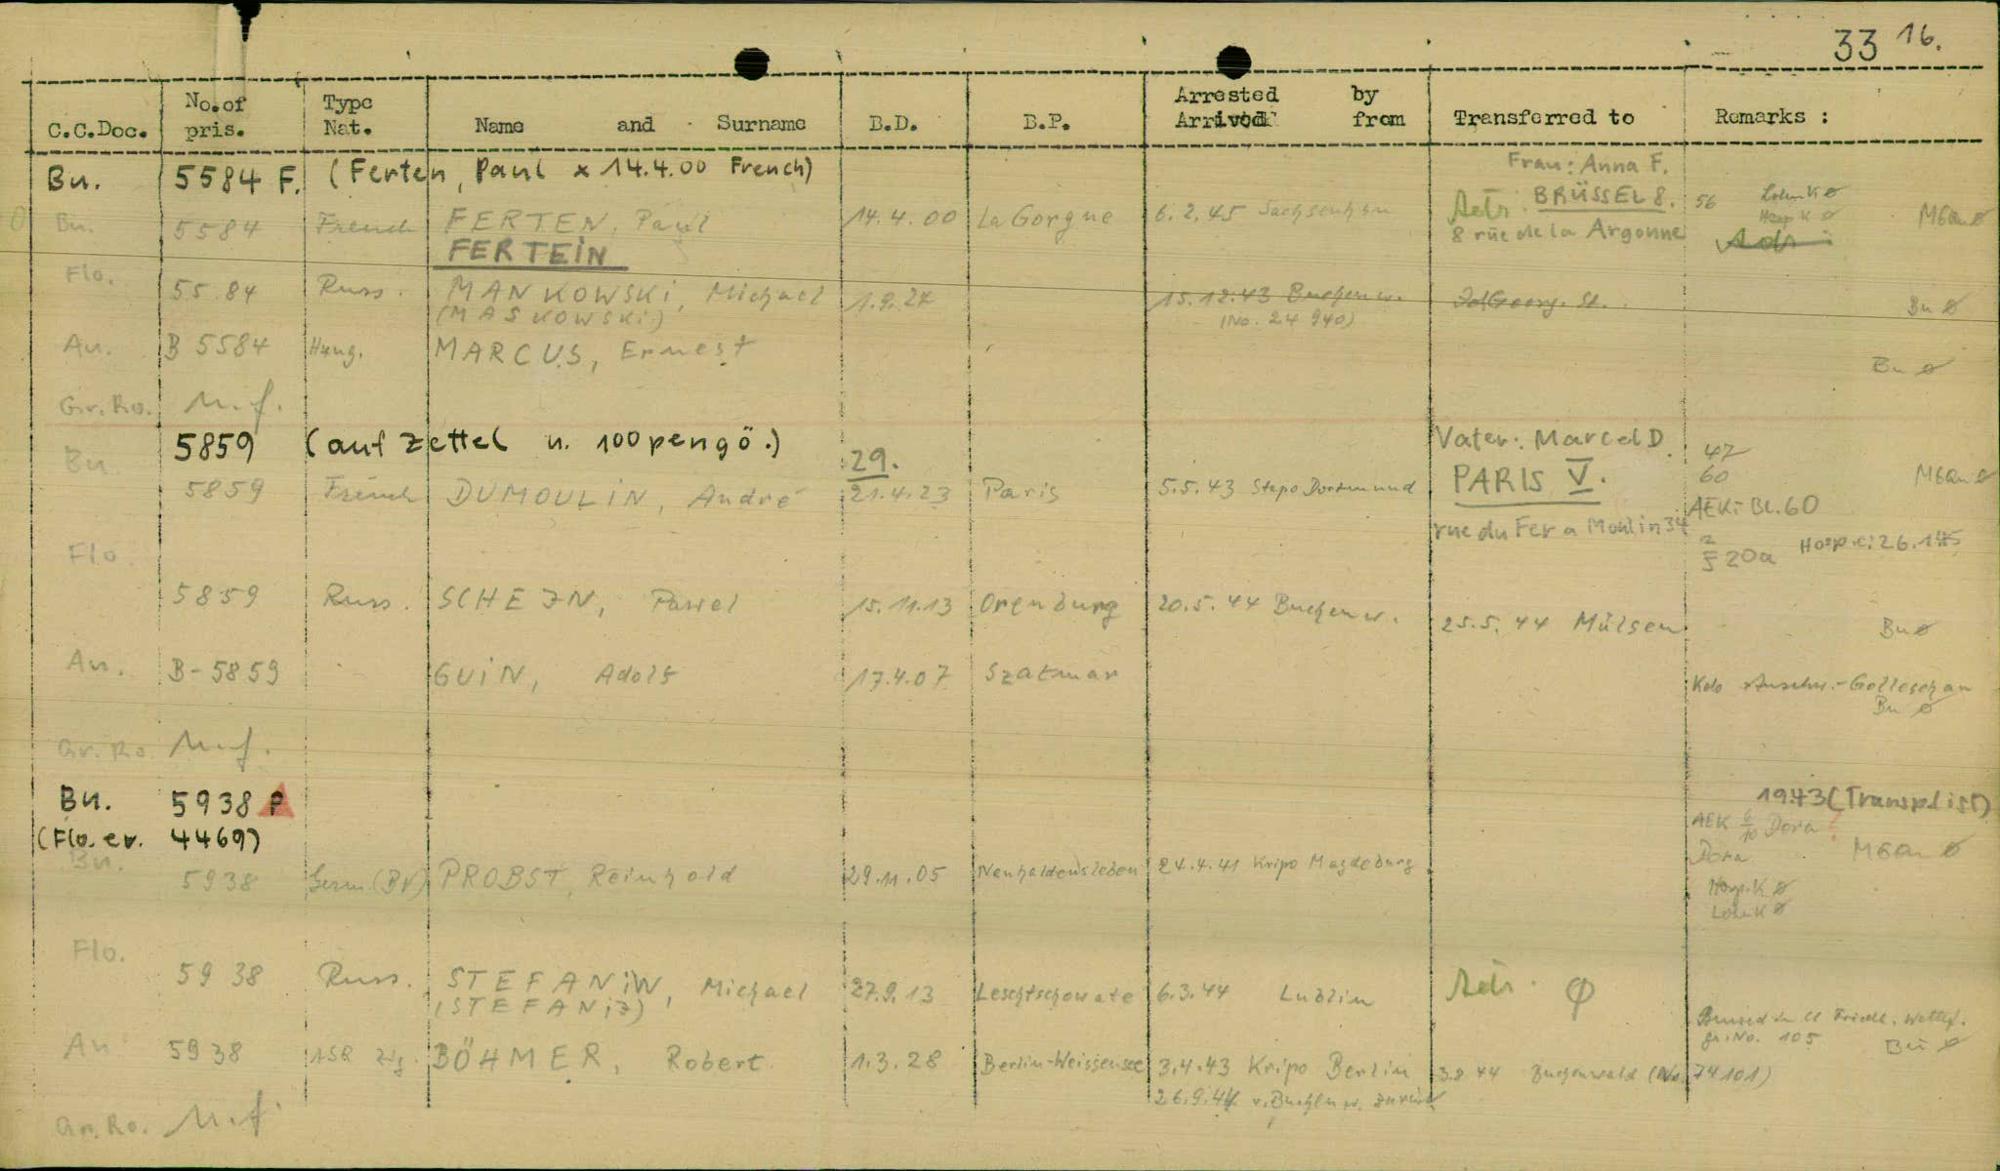 33 16.
C.C.Doc. No. of pris. Type Nat. Name and Surname B.D. B.P. Arrested by Arrived from Transferred to Remarks :
Bu. 5584 F. (Ferten, Paul x 14.4.00 French) Frau: Anna F.
Bu. 5584 French FERTEN, Paul 14.4.00 La Gorgue 6.2.45 BRÜSSEL 8. 56
FERTEIN 8 rue de la Argonne
Flo. 5584 Russ. MANKOWSKi, Michael 15.12.43 Buchenw. Bu ø
(MASKOWSKi) (No. 24 940)
Au. B 5584 Hung. MARCUS, Ernest Bu ø
Gr. Ro. N.f.
5859 (auf Zettel u. 100 pengö.) Vater: Marcel D. 47
Bu. 29. 60
5859 French DUMOULiN, André 21.4.23 Paris 5.5.43 Stapo Dortmund PARIS V.
AEK: Bl. 60
rue du Fer a Moulin 34
Flo. 20a
5859 Russ. 15.11.13 Orenburg 20.5.44 Buchenw. 25.5.44 Mülsen Bu ø
Au. B-5859 GUiN, Adolf 17.4.07 Szatmar Kdo Golleschau
Bu ø
Gr. Ro. N.f.
Bu. 5938 P 1943 (Transplist)
(Flo. er. 4469) AEK Dora
Bu. Dora
5938 Germ. (BV) PROBST, Reinhold 29.11.05 Neuhaldensleben 24.4.41 Kripo Magdeburg
Flo. 5938 Russ. STEFANiW, Michael 27.9.13 6.3.44 Lublin
Au 5938 BÖHMER, Robert 1.3.28 Berlin-Weissensee 3.4.43 Kripo Berlin 3.8.44 Buchenwald (No. 74101)
26.9.44 v. Buchenw. zurück
Gr. Ro. N.f.